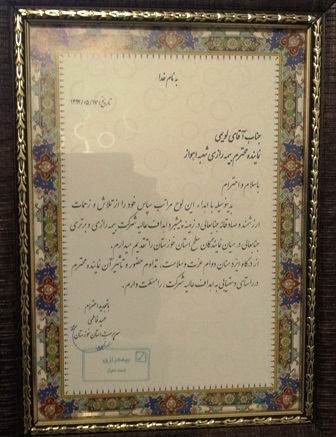 به نام خدا
تاریخ: ۱۳۹۲/۰۵/۱۷
جناب آقای لویمی
نماینده محترم بیمه رازی شعبه اهواز
با سلام و احترام
بدینوسیله با اهداء این لوح مراتب سپاس خود را از تلاش و زحمات
ارزشمند و صادقانه جنابعالی در زمینه پیشبرد اهداف عالیه شرکت بیمه رازی و برتری
جنابعالی در میان نمایندگان سطح استان خوزستان را تقدیم میدارم.
از درگاه ایزد منان دوام عزت و سلامت، تداوم حضور و تأثیر آن نماینده محترم
در راستای دستیابی به اهداف عالیه شرکت را مسئلت دارم.
با تجدید احترام
سرپرست استان خوزستان
بیمه رازی
شعبه اهواز